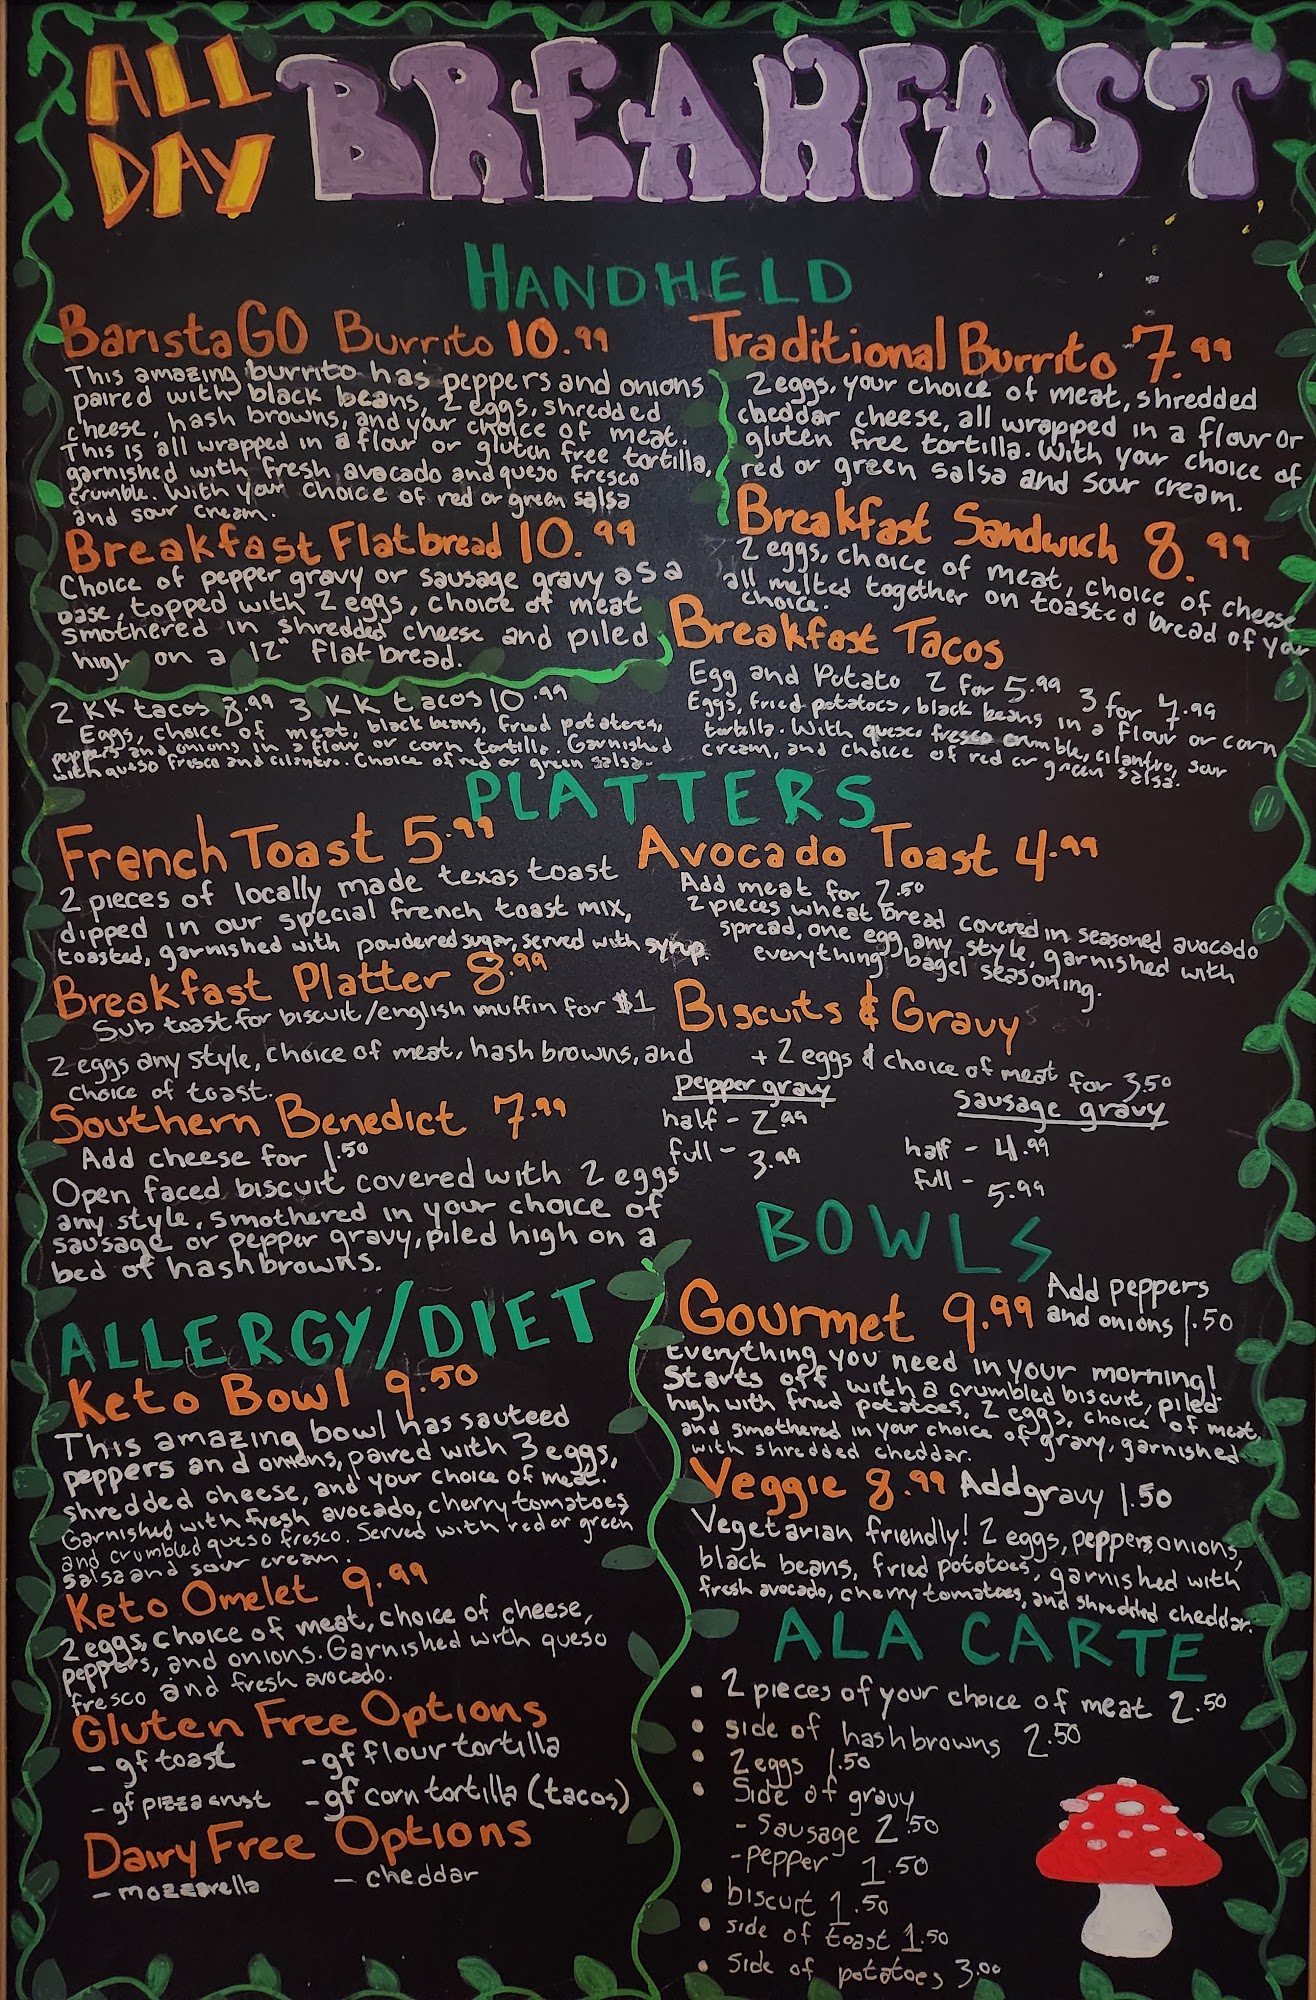 ALL
DAY
BREAKFAST
HANDHELD
BaristaGO Burrito 10.99
This amazing burrito has peppers and onions
paired with black beans, 2 eggs, shredded
cheese, hash browns, and your choice of meat.
This is all wrapped in a flour or gluten free tortilla,
garnished with fresh avocado and queso fresco
crumble. With your choice of red or green salsa
and sour cream.
Breakfast Flatbread 10.99
Choice of pepper gravy or sausage gravy as a
base, topped with 2 eggs, choice of meat
smothered in shredded cheese and piled
high on a 12" flatbread.
Traditional Burrito 7.99
2 eggs, your choice of meat, shredded
cheddar cheese, all wrapped in a flour or
gluten free tortilla. With your choice of
red or green salsa and sour cream.
Breakfast Sandwich 8.99
2 eggs, choice of meat, choice of cheese
all melted together on toasted bread of your
choice.
Breakfast Tacos
Egg and Potato 2 for 5.99 3 for 7.99
Eggs, fried potatoes, black beans in a flour or corn
tortilla. With queso fresco crumble, cilantro, sour
cream, and choice of red or green salsa.
2 KK tacos 8.99 3 KK tacos 10.99
Eggs, choice of meat, black beans, fried potatoes,
peppers and onions in a flour or corn tortilla. Garnished
with queso fresco and cilantro. Choice of red or green salsa.
PLATTERS
French Toast 5.99
2 pieces of locally made texas toast
dipped in our special french toast mix,
toasted, garnished with powdered sugar, served with syrup.
Breakfast Platter 8.99
Sub toast for biscuit/english muffin for $1
2 eggs any style, choice of meat, hash browns, and
choice of toast.
Southern Benedict 7.99
Add cheese for 1.50
Open faced biscuit covered with 2 eggs
any style, smothered in your choice of
sausage or pepper gravy, piled high on a
bed of hashbrowns.
Avocado Toast 4.99
Add meat for 2.50
2 pieces wheat bread covered in seasoned avocado
spread, one egg any style, garnished with
everything bagel seasoning.
Biscuits & Gravy
+ 2 eggs & choice of meat for 3.50
pepper gravy
half - 2.99
full - 3.99
sausage gravy
half - 4.99
full - 5.99
BOWLS
Gourmet 9.99 Add peppers
and onions 1.50
Everything you need in your morning!
Starts off with a crumbled biscuit, piled
high with fried potatoes, 2 eggs, choice of meat,
and smothered in your choice of gravy, garnished
with shredded cheddar.
Veggie 8.99 Add gravy 1.50
Vegetarian friendly! 2 eggs, peppers, onions,
black beans, fried pototoes, garnished with
fresh avocado, cherry tomatoes, and shredded cheddar.
ALLERGY/DIET
Keto Bowl 9.50
This amazing bowl has sauteed
peppers and onions, paired with 3 eggs,
shredded cheese, and your choice of meat.
Garnished with fresh avocado, cherry tomatoes,
and crumbled queso fresco. Served with red or green
salsa and sour cream.
Keto Omelet 9.99
2 eggs, choice of meat, choice of cheese,
peppers, and onions. Garnished with queso
fresco and fresh avocado.
Gluten Free Options
- gf toast - gf flour tortilla
- gf pizza crust - gf corn tortilla (tacos)
Dairy Free Options
- mozzarella - cheddar
ALA CARTE
• 2 pieces of your choice of meat 2.50
• side of hashbrowns 2.50
• 2 eggs 1.50
• Side of gravy
- Sausage 2.50
- pepper 1.50
• biscuit 1.50
• side of toast 1.50
• side of pototoes 3.00